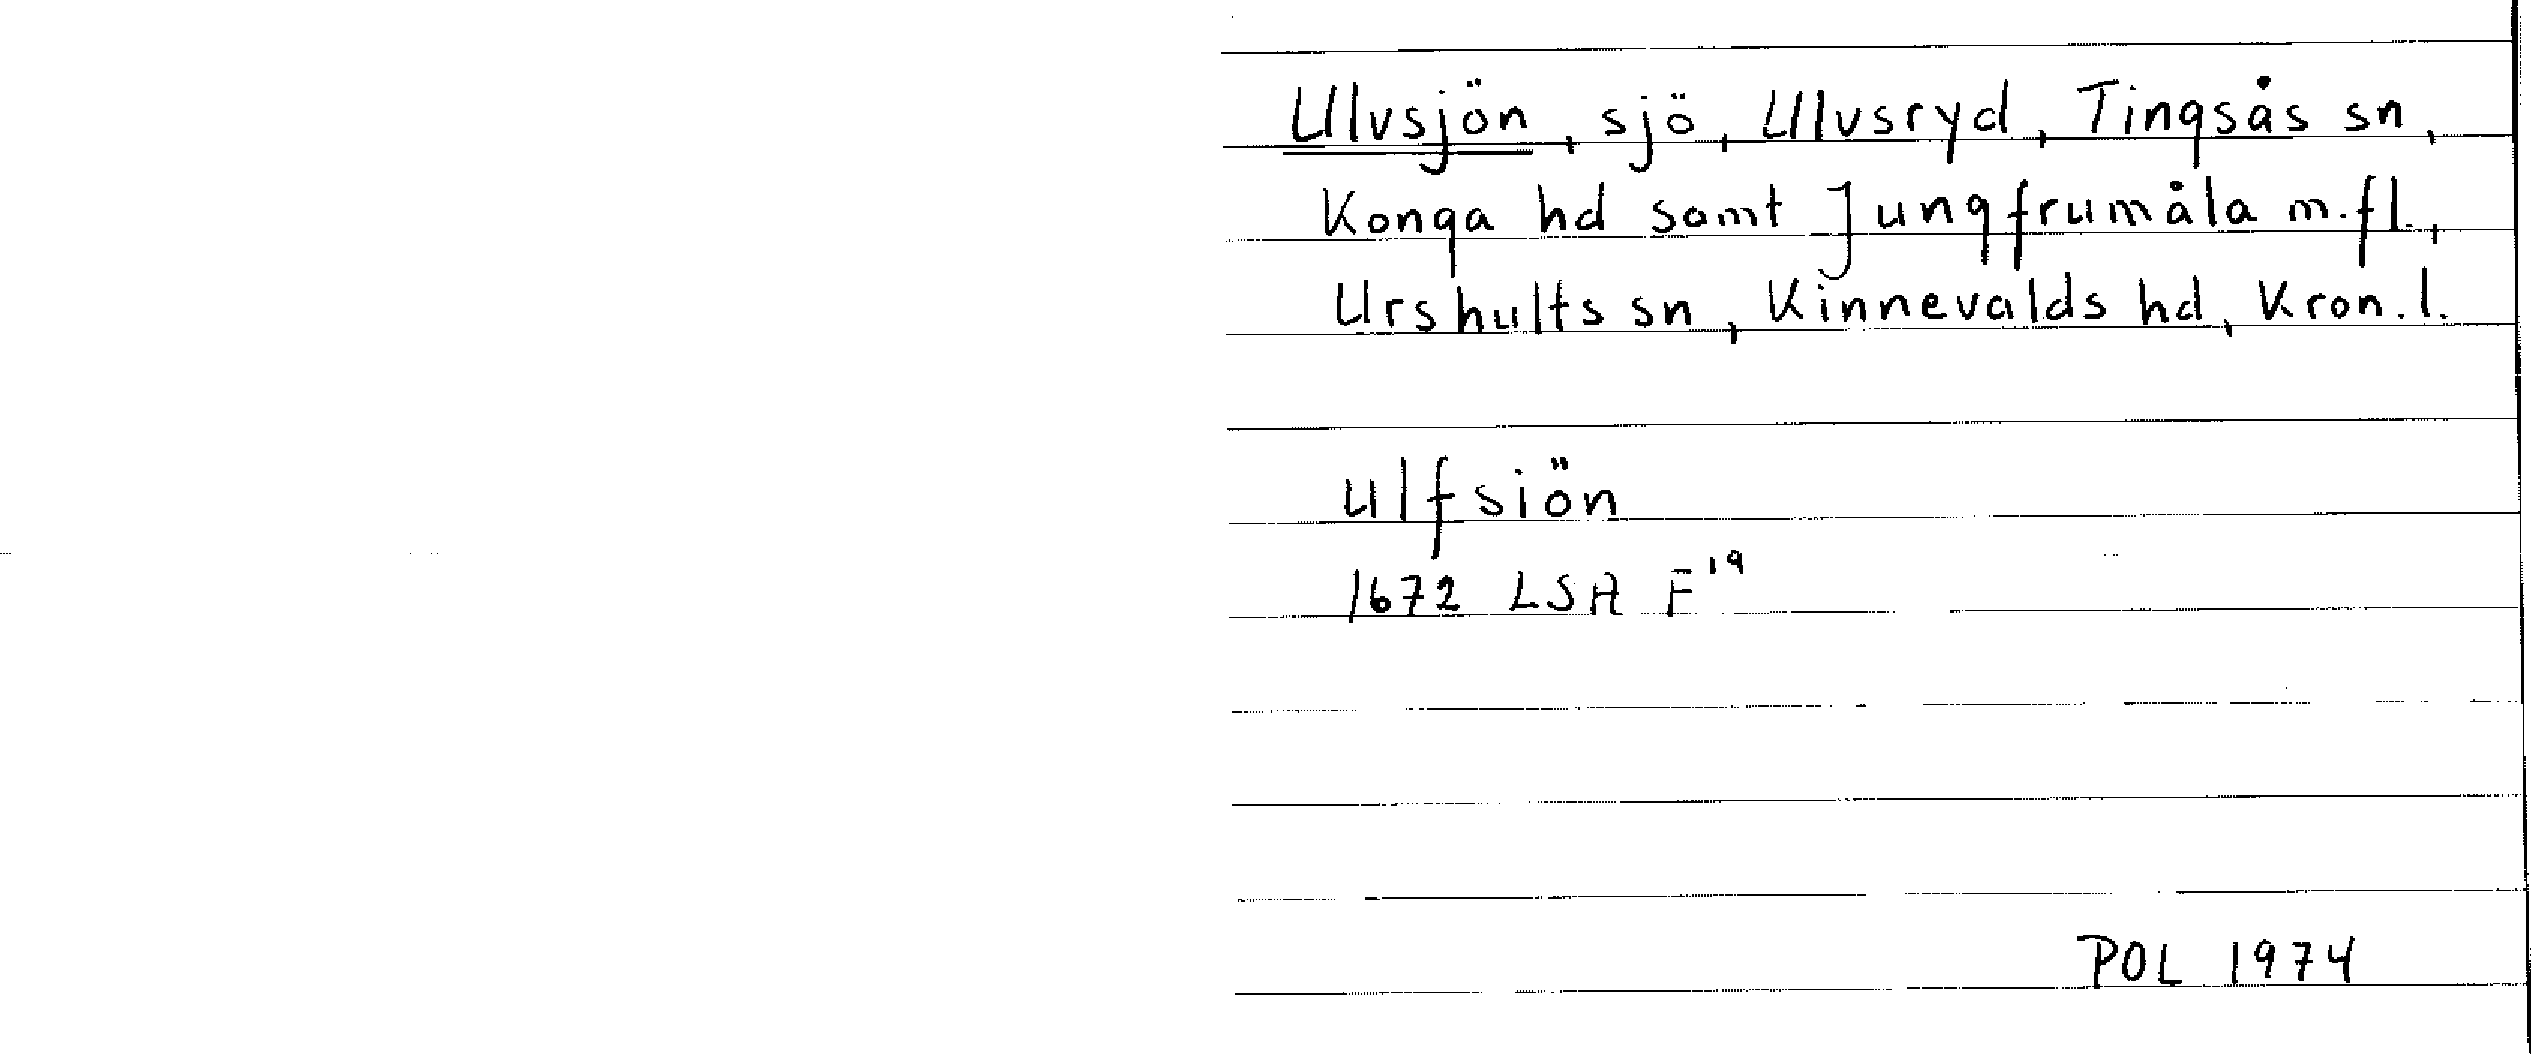 Ulvsjön, sjö, Ulvsryd, Tingsås sn,
Konga hd samt Jungfrumåla m.fl.,
Urshults sn, Kinnevalds hd, Kron. l.
Ulfsiön
1672 LSA F¹⁹
POL 1974